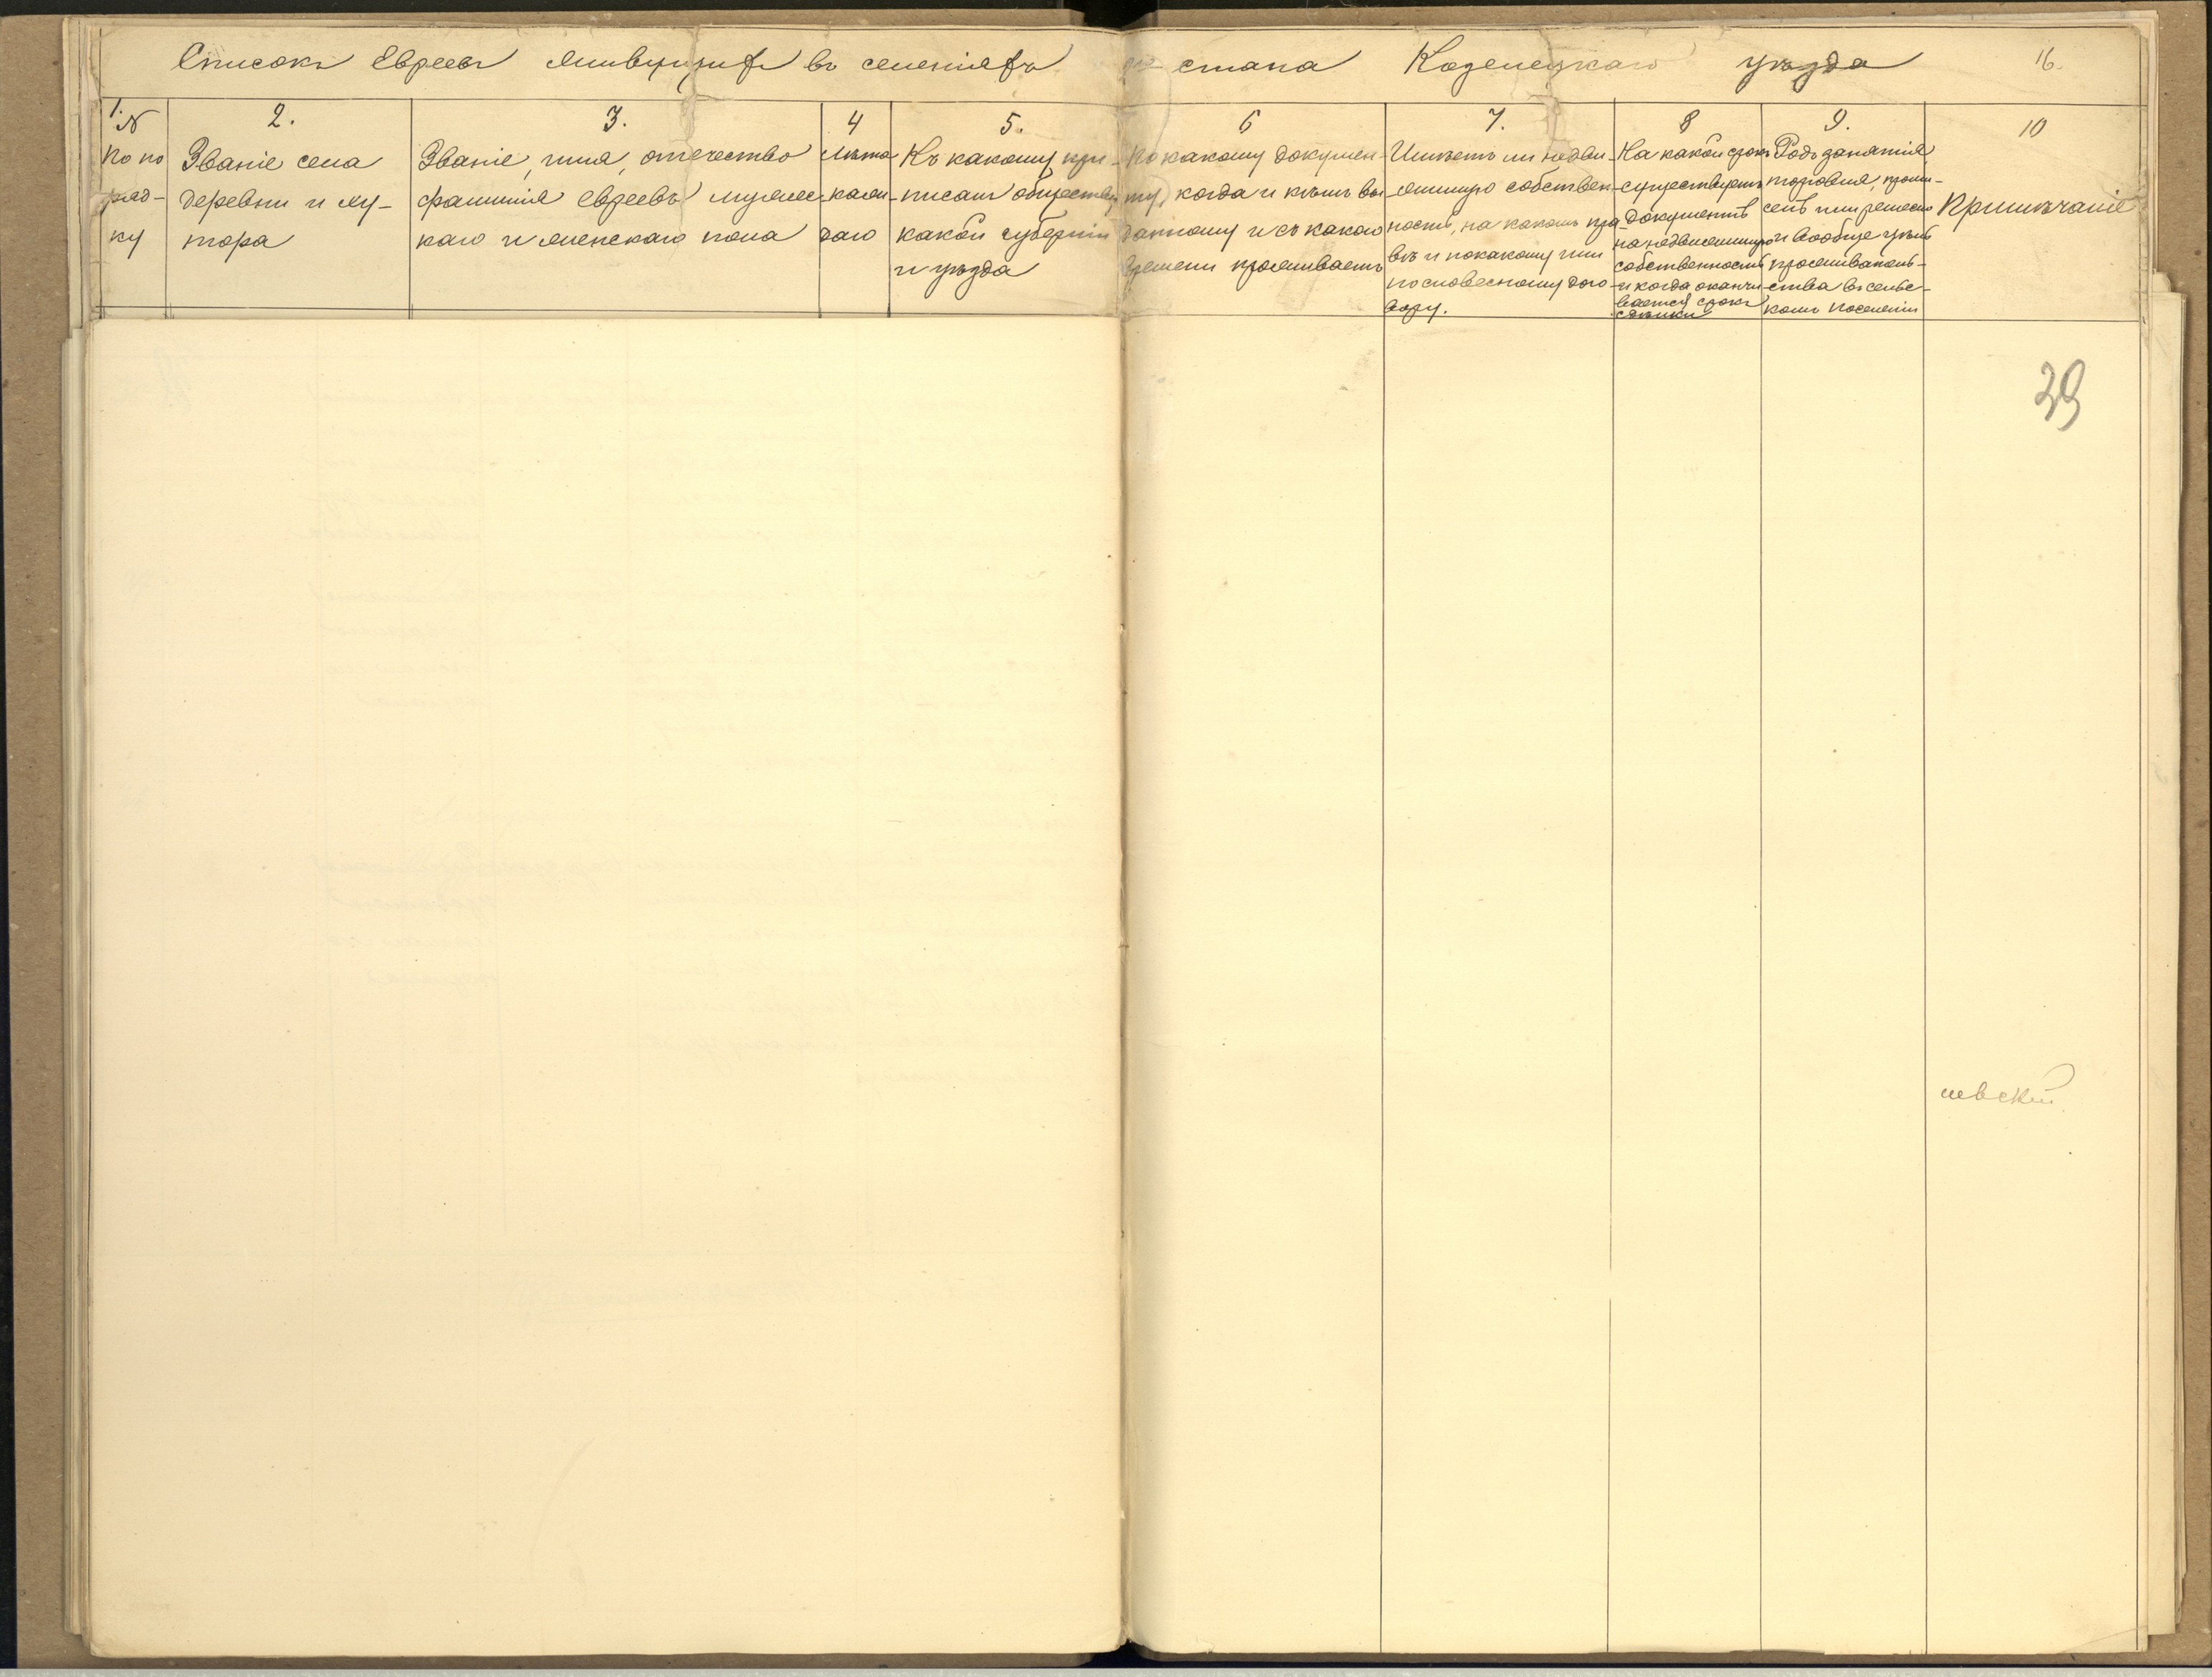 Списокъ Евреевъ живущихъ въ селеніяхъ 2го стана Козелецкаго уѣзда
16.
1. N По по рядку
2. Званіе села деревни и ху-
тора
3. Званіе, имя, отечество
фамилія Евреевъ мужес-
каго и женскаго пола
4 Лѣта
каж-
даго
5. Къ какому при-
писанъ обществу
какой губерніи
и уѣзда
6 По какому докумен-
ту, когда и кѣмъ вы
данному и съ какого
времени проживаетъ
7. Имѣетъ ли недви-
жимую собствен-
ность, на какомъ пра-
вѣ и покакому или
по словесному дого-
вору.
8 На какой срокъ
существуетъ
документъ
на недвижимую
собственность
и когда оканчи-
вается срокъ
сдѣлки
9. Родъ занятія
торговля, промы-
селъ или ремесло
и вообще цѣль
проживатель-
ства въ сельс-
комъ поселеніи
10
Примѣчаніе
39
левскій